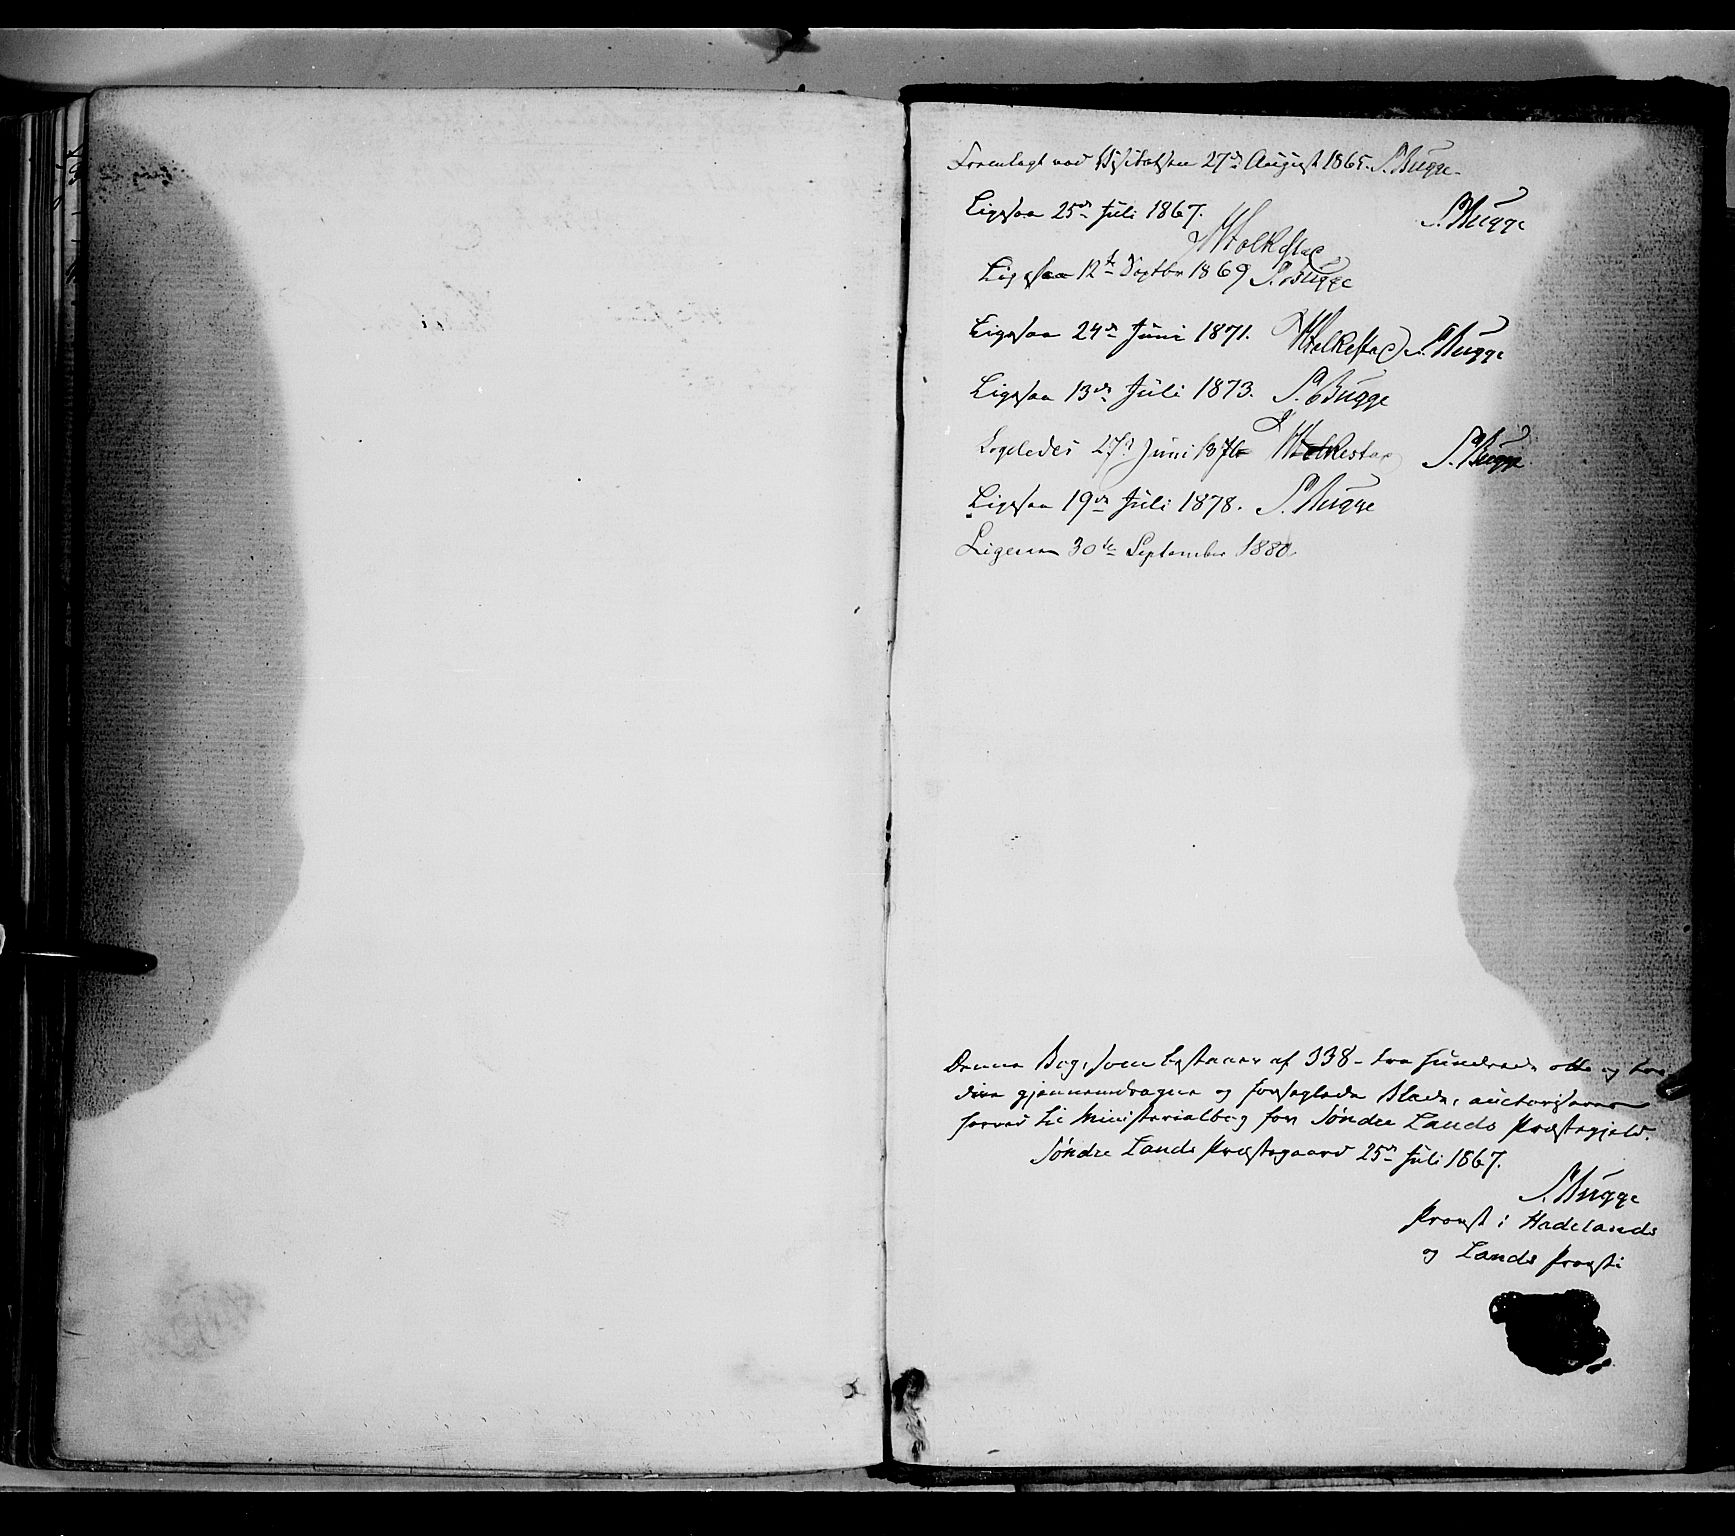 Foremlagt ved Visitatsen 27de August 1865. S. Bugge.
Ligesaa 25de Juli 1867. S. Bugge
Halkestad
Ligesaa 12te Septbr 1869 S. Bugge
Ligesaa 24de Juni 1871. S. Bugge
Ligesaa 13de Juli 1873. S. Bugge
Ligeledes 27d Juni S. Bugge
Ligesaa 19de Juli 1878. S. Bugge
Ligesaa 30te September 1880.
Denne Bog, som bestaaer af 338 - tre hundrede otte og tre-
dive gjennemdragne og forseglede Blade, auctoriseres
herved til Ministerialbog for Søndre Lands Præstegjeld.
Søndre Lands Præstegaard 25de Juli 1867.
S. Bugge
Provst i Hadelands
og Lands Provsti